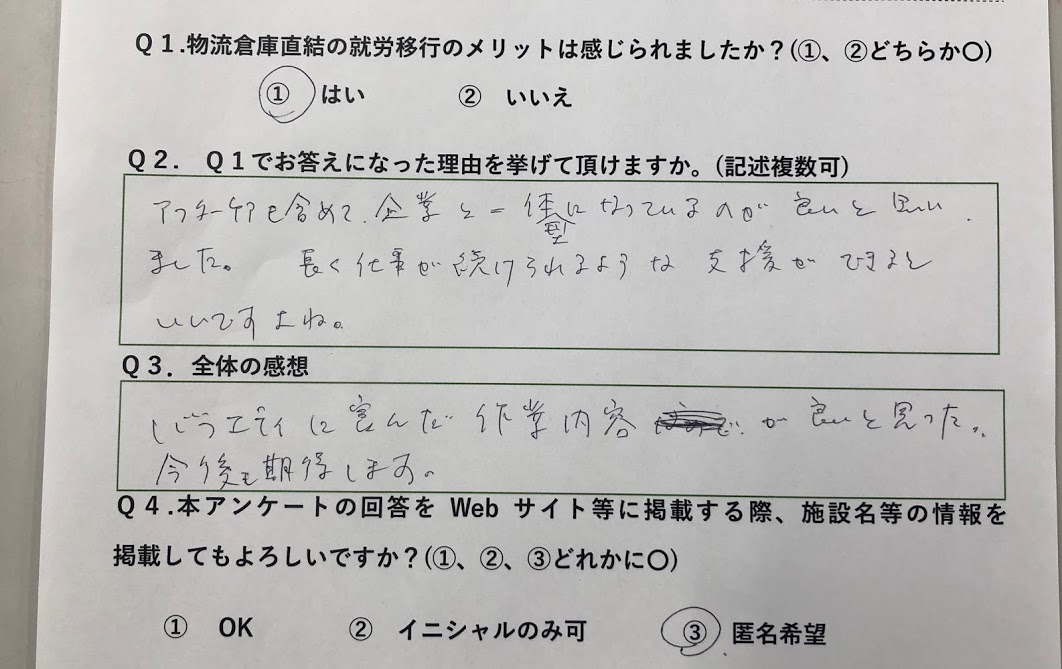 Q1.物流倉庫直結の就労移行のメリットは感じられましたか？(①、②どちらか〇)
① はい ② いいえ
Q2． Q1でお答えになった理由を挙げて頂けますか。(記述複数可)
アフターケアも含めて、企業と一体型になっているのが良いと思い
ました。 長く仕事が続けられるような支援ができると
いいですよね。
Q3．全体の感想
バラエティに富んだ作業内容が良いと思った。
今後も期待します。
Q4.本アンケートの回答を Web サイト等に掲載する際、施設名等の情報を
掲載してもよろしいですか？(①、②、③どれかに〇)
① OK ② イニシャルのみ可 ③ 匿名希望